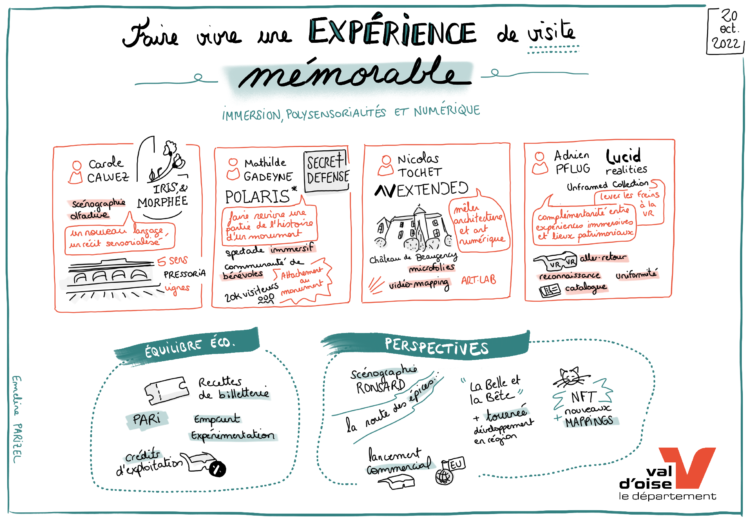 Faire vivre une EXPÉRIENCE de visite
mémorable
20
oct.
2022
IMMERSION, POLYSENSORIALITÉS ET NUMÉRIQUE
Carole
CALVEZ
IRIS &
MORPHÉE
scénographie
olfactive
un nouveau langage,
un récit sensorialisé
5 SENS
PRESSORIA
vignes
Mathilde
GADEYNE
SECRET
DEFENSE
POLARIS*
faire revivre une
partie de l'histoire
d'un monument
spectacle immersif
communauté de
bénévoles
Attachement
au
monument
20k visiteurs
Nicolas
TOCHET
AV EXTENDED
mêler
architecture
et art
numérique
Château de Beaugency
microfolies
vidéo-mapping
ART-LAB
Adrien
PFLUG
Lucid
realities
Unframed Collection
lever les freins
à la
VR
complémentarité entre
expériences immersives
et lieux patrimoniaux
VR
VR
aller-retour
reconnaissance
uniformité
catalogue
ÉQUILIBRE ÉCO.
Recettes
de billetterie
PARi
Emprunt
Expérimentation
crédits
d'exploitation
%
PERSPECTIVES
scénographie
RONSARD
la route des épices
"La Belle et
la Bête"
+ tournée
développement
en région
NFT
+ nouveaux
MAPPINGS
lancement
commercial
EU
Emeline PARIZEL
val
d'oise
le département